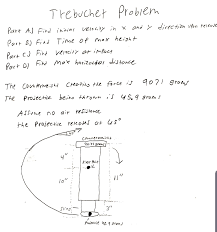 Trebuchet Problem
Part A) Find initial velocity in x and y direction when release
Part B) Find Time of max height
Part C) Find velocity at impact
Part D) Find max horizontal distance
The counterweight creating the force is 9071 grams
The projectile being thrown is 45.9 grams
Assume no air resistance
The projectile releases at 45°
Counterweight
9071 grams
4"
10"
11"
3"
Projectile 45.9 grams